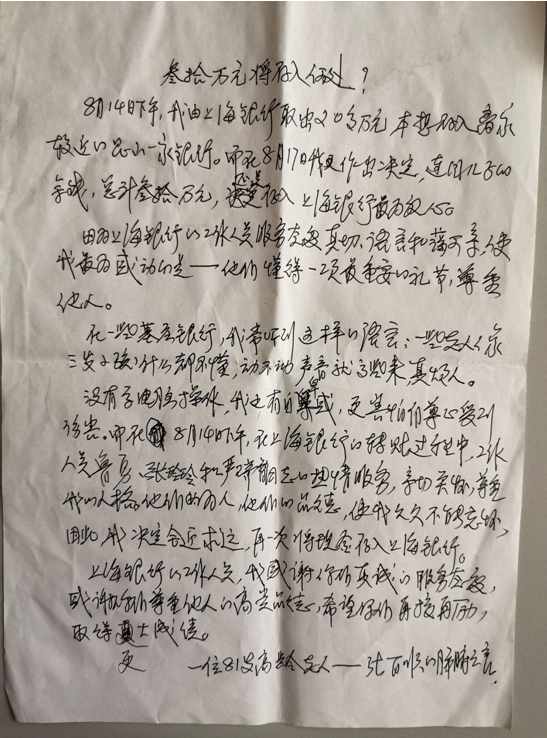 叁拾万元将存入何处？
8月14日下午，我由上海银行取出20多万元，本想存入离家
较近的另一家银行。而在8月17日我又作出决定，连同几万的
余钱，总计叁拾万元，还是存入上海银行最为放心。
因为上海银行的工作人员服务态度真切，语言和蔼可亲，使
我最为感动的是——他们懂得一项最重要的礼节，尊重
他人。
在一些基层银行，我常听到这样的语言：一些老人你
三番二次什么都不懂，动不动声音就高起来真烦人。
没有了电脑操作，我还有自尊感，更害怕自尊心受到
伤害。而在8月14日下午，在上海银行的转账过程中，工作
人员鲁勇、张玲玲和严 同志的热情服务，亲切关怀，尊重
我的人格，他们的为人，他们的品德，使我久久不能忘怀，
因此，我决定舍近求远，再次将现金存入上海银行。
上海银行的工作人员，我感谢你们真诚的服务态度，
感谢你们尊重他人的高贵品德，希望你们再接再励，
取得更大成绩。
一位81岁高龄老人——张百顺的肺腑之言。